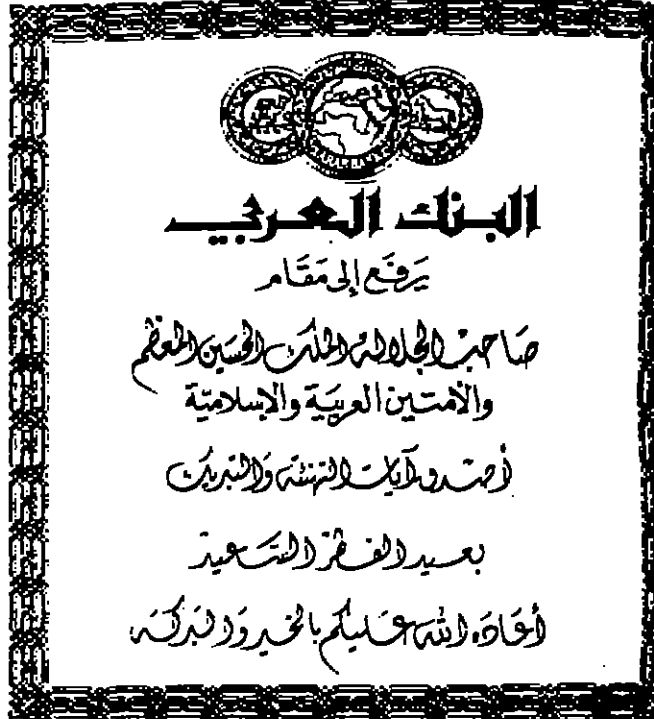 ARAB BANK
البنك العربي
يَرفَع إلى مَقَام
صَاحب الجلالة الملك الحسين المعظم
والأمتين العربيَة والإسلاميّة
أصدق آيات التهنئة وَالتبريك
بعيد الفطر السَعيد
أعَادَه الله عَليكم بالخير وَالبركة